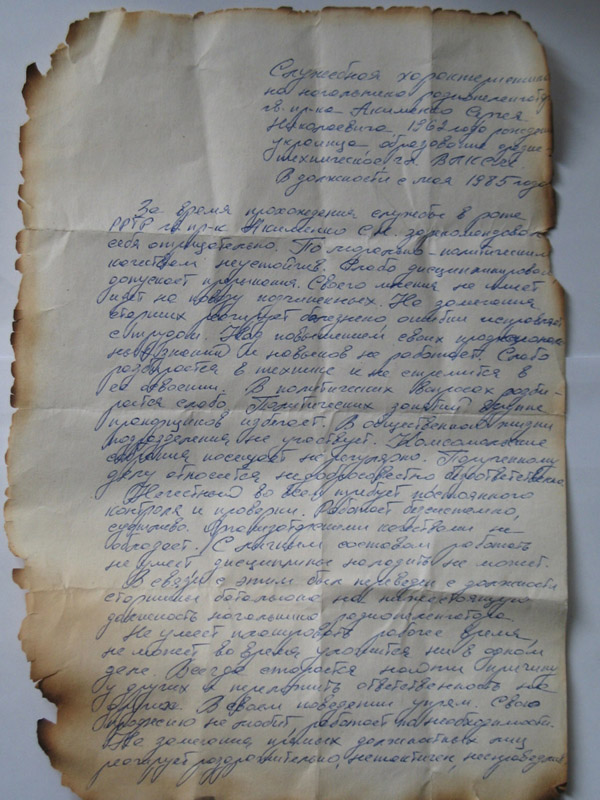 Служебная характеристика
на начальника радиопеленгатора
гв. пр-ка Акименко Сергея
Николаевича 1962 года рождения
украинца образование средне-
техническое чл. ВЛКСМ.
В должности с мая 1985 года
За время прохождения службы в роте
РРТР гв. пр-к Акименко С.Н. зарекомендовал
себя отрицательно. По морально-политическим
качествам неустойчив. Слабо дисциплинирован
допускает пререкания. Своего мнения не имеет
идёт на поводу подчиненных. На замечания
старших реагирует болезненно ошибки исправляет
с трудом. Над повышением своих профессиональ-
ных знаний и навыков не работает. Слабо
разбирается в технике и не стремится к
её освоению. В политических вопросах разби-
рается слабо. Политических занятий группе
прапорщиков избегает. В общественной жизни
подразделения не участвует. Комсомольские
собрания посещает не регулярно. Порученному
делу относится недобросовестно безответственно
Нечестный во всем требует постоянного
контроля и проверки. Работает бессистемно,
суетливо. Организаторскими качествами не
обладает. С личным составом работать
не умеет дисциплины наладить не может.
В связи с этим был переведен с должности
старшины батальона на нижестоящую
должность начальника радиопеленгатора.
Не умеет планировать рабочее время,
не может во время уложится ни в одном
деле. Всегда старается найти причину
у других и переложить ответственность на
других. В своем поведении упрям. Свою
профессию не любит, работает по необходимости.
На замечания прямых должностных лиц
реагирует раздражительно, нетактичен, несправедлив